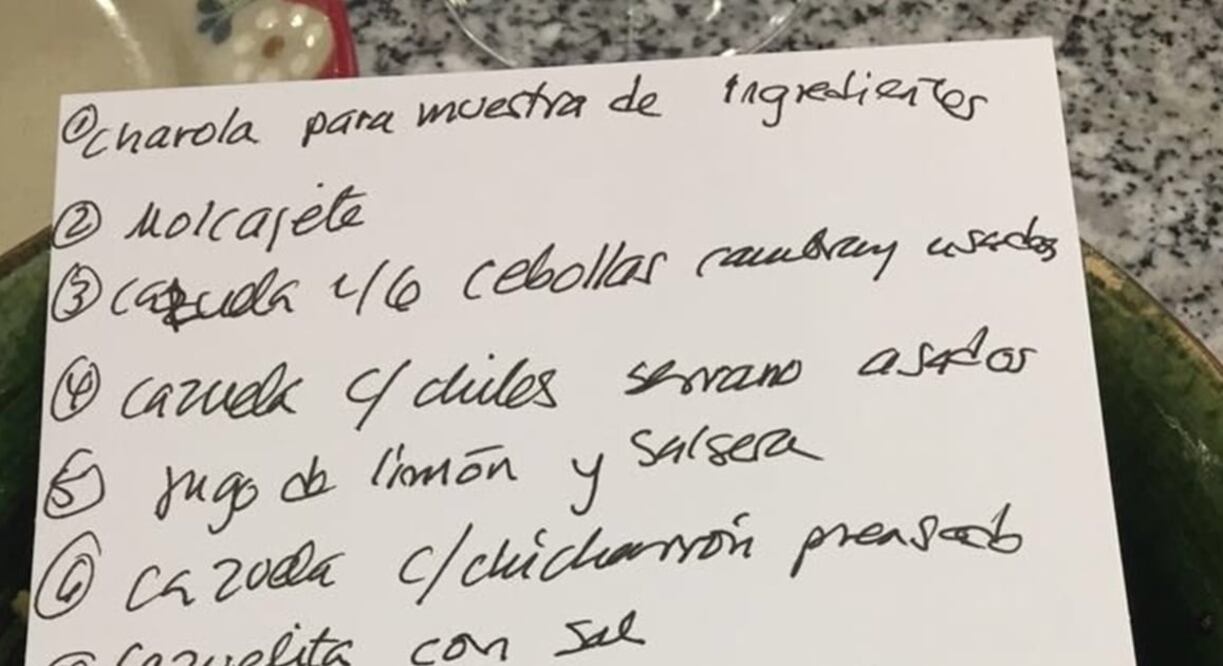 ① charola para muestra de ingredientes
② Molcajete
③ cazuela c/6 cebollas cambray asadas
④ cazuela c/chiles serrano asados
⑤ jugo de limón y salsera
⑥ cazuela c/chicharrón prensado
cazuelita con sal